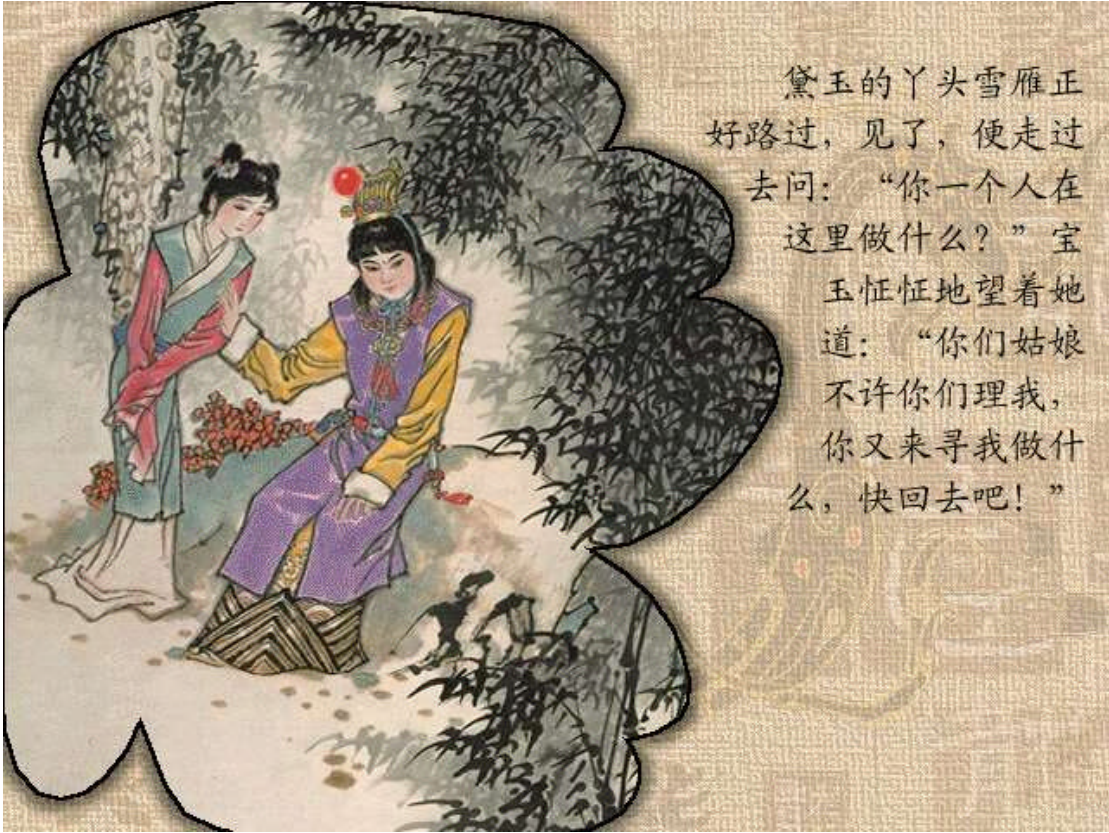 黛玉的丫头雪雁正
好路过，见了，便走过
去问：“你一个人在
这里做什么？”宝
玉怔怔地望着她
道：“你们姑娘
不许你们理我，
你又来寻我做什
么，快回去吧！”